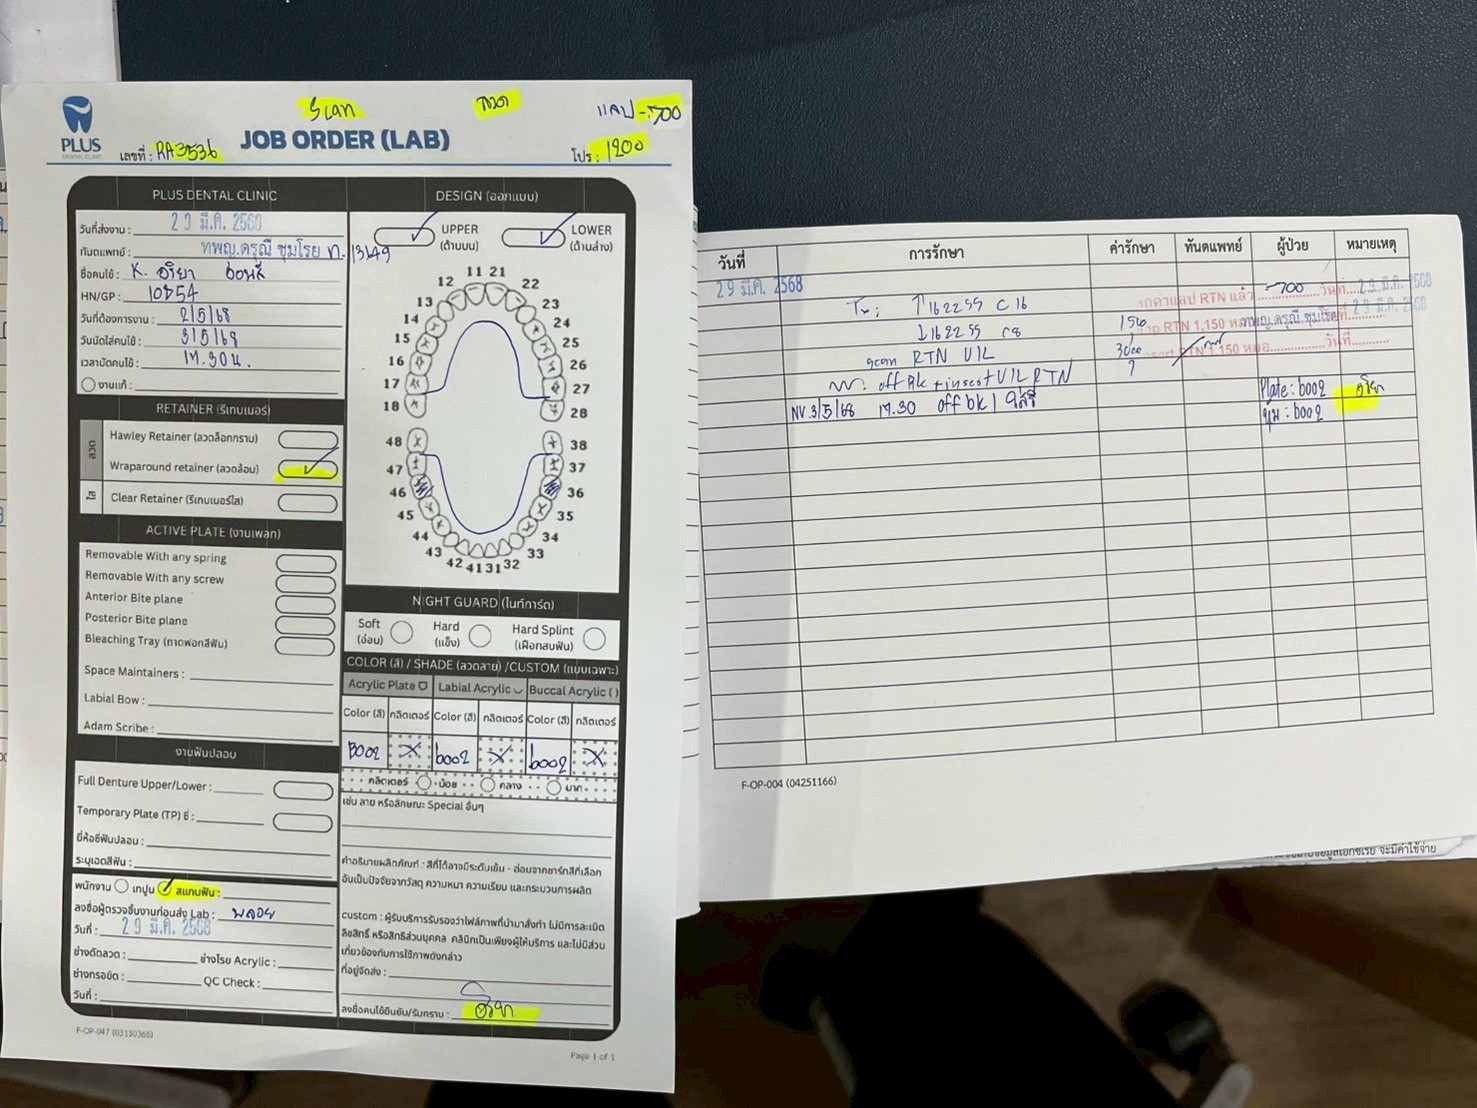 Scan
ลวด
แลป -700
PLUS
DENTAL CLINIC
เลขที่ : RA3536
JOB ORDER (LAB)
โปร : 1200
PLUS DENTAL CLINIC
วันที่ส่งงาน : 29 มี.ค. 2568
ทันตแพทย์ : ทพญ.ดรุณี ชุมโรย ท.13149
ชื่อคนไข้ : K. อริยา
HN/GP : 10854
วันที่ต้องการงาน : 2/5/68
วันนัดใส่คนไข้ : 3/5/68
เวลานัดคนไข้ : 17.30 น.
งานแก้ :
RETAINER (รีเทนเนอร์)
ลวด
Hawley Retainer (ลวดล็อกกราม)
Wraparound retainer (ลวดล้อม)
ใส
Clear Retainer (รีเทนเนอร์ใส)
ACTIVE PLATE (งานเพลท)
Removable With any spring
Removable With any screw
Anterior Bite plane
Posterior Bite plane
Bleaching Tray (ถาดฟอกสีฟัน)
Space Maintainers :
Labial Bow :
Adam Scribe :
งานฟันปลอม
Full Denture Upper/Lower :
Temporary Plate (TP) ซี่ :
ยี่ห้อซี่ฟันปลอม :
ระบุเฉดสีฟัน :
พนักงาน เทปูน สแกนฟัน :
ลงชื่อผู้ตรวจชิ้นงานก่อนส่ง Lab : พลอย
วันที่ : 29 มี.ค. 2568
ช่างดัดลวด : ช่างโรย Acrylic :
ช่างกรอขัด : QC Check :
วันที่ :
F-OP-047 (03130366)
DESIGN (ออกแบบ)
UPPER
(ด้านบน)
LOWER
(ด้านล่าง)
11 21
12 22
13 23
14 24
15 25
16 26
17 27
18 28
48 38
47 37
46 36
45 35
44 34
43 33
42 41 31 32
NIGHT GUARD (ไนท์การ์ด)
Soft
(อ่อน)
Hard
(แข็ง)
Hard Splint
(เฝือกสบฟัน)
COLOR (สี) / SHADE (ลวดลาย) /CUSTOM (แบบเฉพาะ)
Acrylic Plate Labial Acrylic Buccal Acrylic ( )
Color (สี) กลิตเตอร์ Color (สี) กลิตเตอร์ Color (สี) กลิตเตอร์
B002 X b002 X b002 X
กลิตเตอร์ น้อย กลาง มาก
เช่น ลาย หรือลักษณะ Special อื่นๆ
คำอธิบายผลิตภัณฑ์ : สีที่ได้อาจมีระดับเข้ม - อ่อนจากชาร์ทสีที่เลือก
อันเป็นปัจจัยจากวัสดุ ความหนา ความเรียบ และกระบวนการผลิต
custom : ผู้รับบริการรับรองว่าไฟล์ภาพที่นำมาสั่งทำ ไม่มีการละเมิด
ลิขสิทธิ์ หรือสิทธิส่วนบุคคล คลินิกเป็นเพียงผู้ให้บริการ และไม่มีส่วน
เกี่ยวข้องกับการใช้ภาพดังกล่าว
ที่อยู่จัดส่ง :
ลงชื่อคนไข้ยืนยัน/รับทราบ : อริยา
Page 1 of 1
วันที่ การรักษา ค่ารักษา ทันตแพทย์ ผู้ป่วย หมายเหตุ
29 มี.ค. 2568
Tx: ↑162255 C16
↓162255 C8
scan RTN U/L
NV: off Bk + insert U/L RTN
NV 3/5/68 17.30 off bk
-700
RTN 1,150
Plate: b002
ปุ่ม: b002
อริยา
F-OP-004 (04251166)
จะมีค่าใช้จ่าย